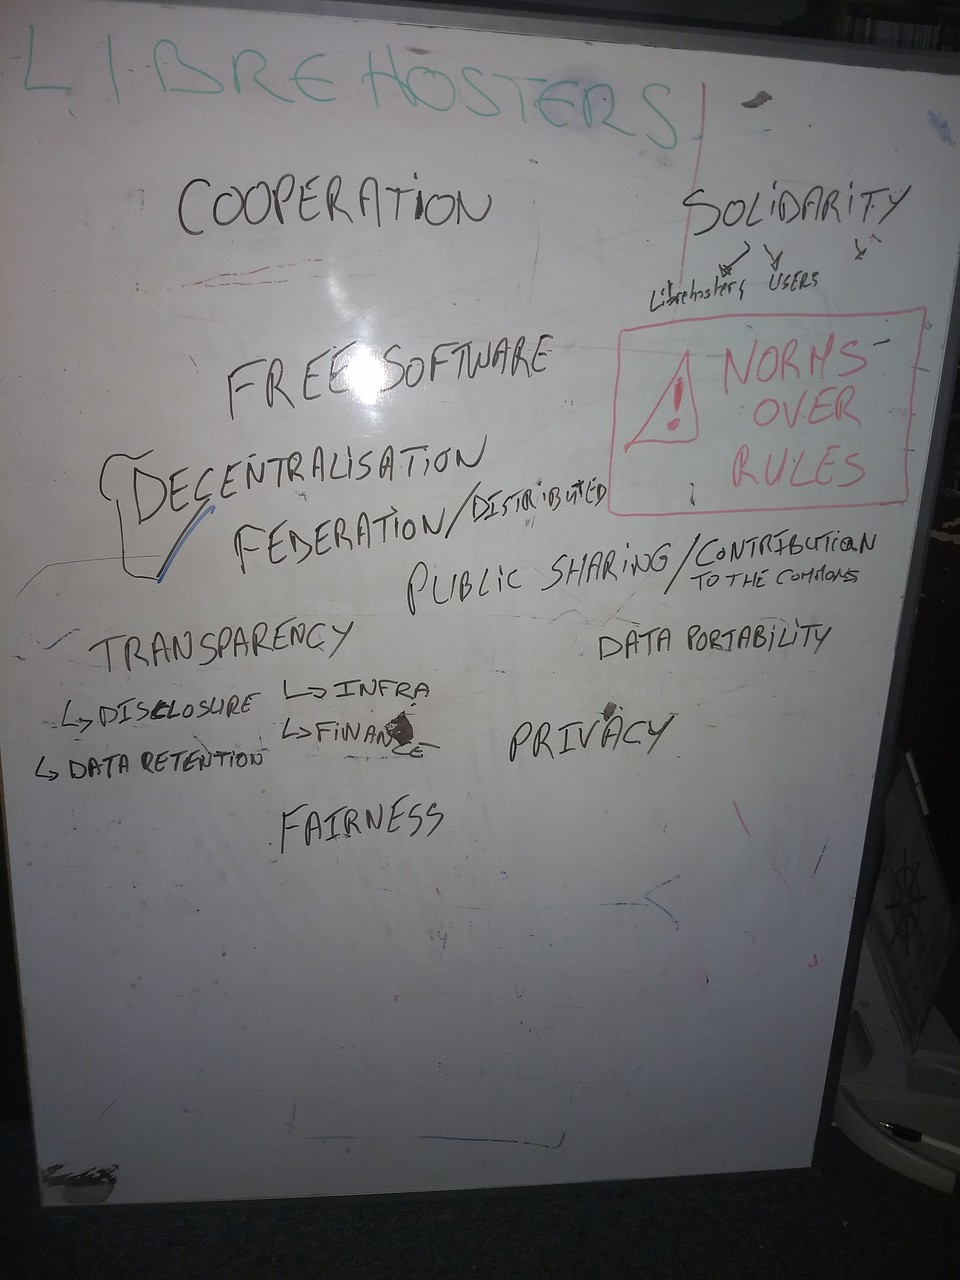 LIBREHOSTERS
COOPERATION
SOLIDARITY
Librehosters USERS
FREE SOFTWARE
NORMS
OVER
RULES
DECENTRALISATION
FEDERATION/DISTRIBUTED
PUBLIC SHARING/CONTRIBUTION
TO THE COMMONS
TRANSPARENCY
DATA PORTABILITY
↳ DISCLOSURE
↳ INFRA
↳ FINANCE
↳ DATA RETENTION
PRIVACY
FAIRNESS